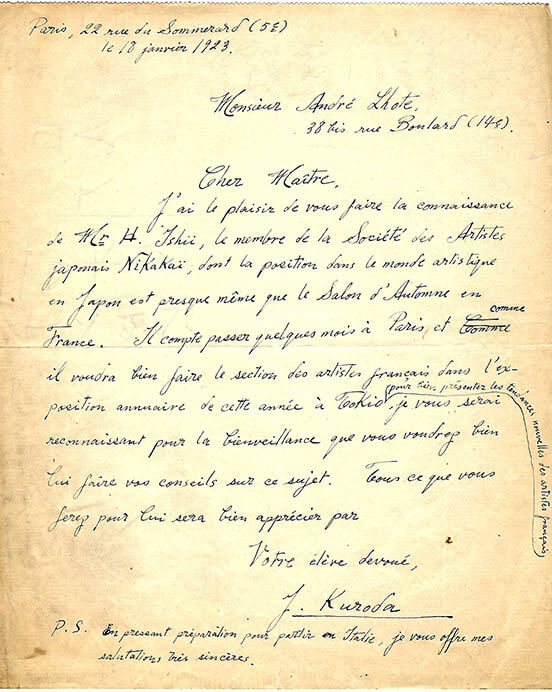 Paris, 22 rue du Sommerard (5e)
le 18 janvier 1923.
Monsieur André Lhote,
38 bis rue Boulard (14e).
Cher Maître,
J'ai le plaisir de vous faire la connaissance
de Mr H. Ishii, le membre de la Société des Artistes
japonais Nikakaï, dont la position dans le monde artistique
en Japon est presque même que le Salon d'Automne en
France. Il compte passer quelques mois à Paris, et Comme comme
il voudra bien faire le section des artistes français dans l'ex-
position annuaire de cette année à Tokio, je vous serai
pour bien présenter les tendances nouvelles des artistes français,
reconnaissant pour la bienveillance que vous voudrez bien
lui faire vos conseils sur ce sujet. Tous ce que vous
ferez pour lui sera bien apprécier par
Votre élève devoué,
J. Kuroda
P.S. En pressant préparation pour partir en Italie, je vous offre mes
salutations très sincères.